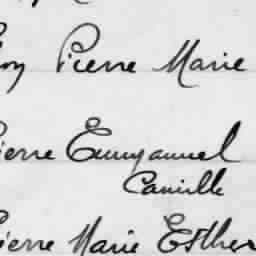 Pierre Marie
Pierre Emmanuel
Camille
Pierre Marie Esther